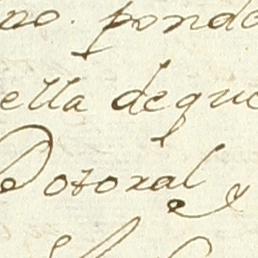 no. pondo
ella deque
Dotoral y